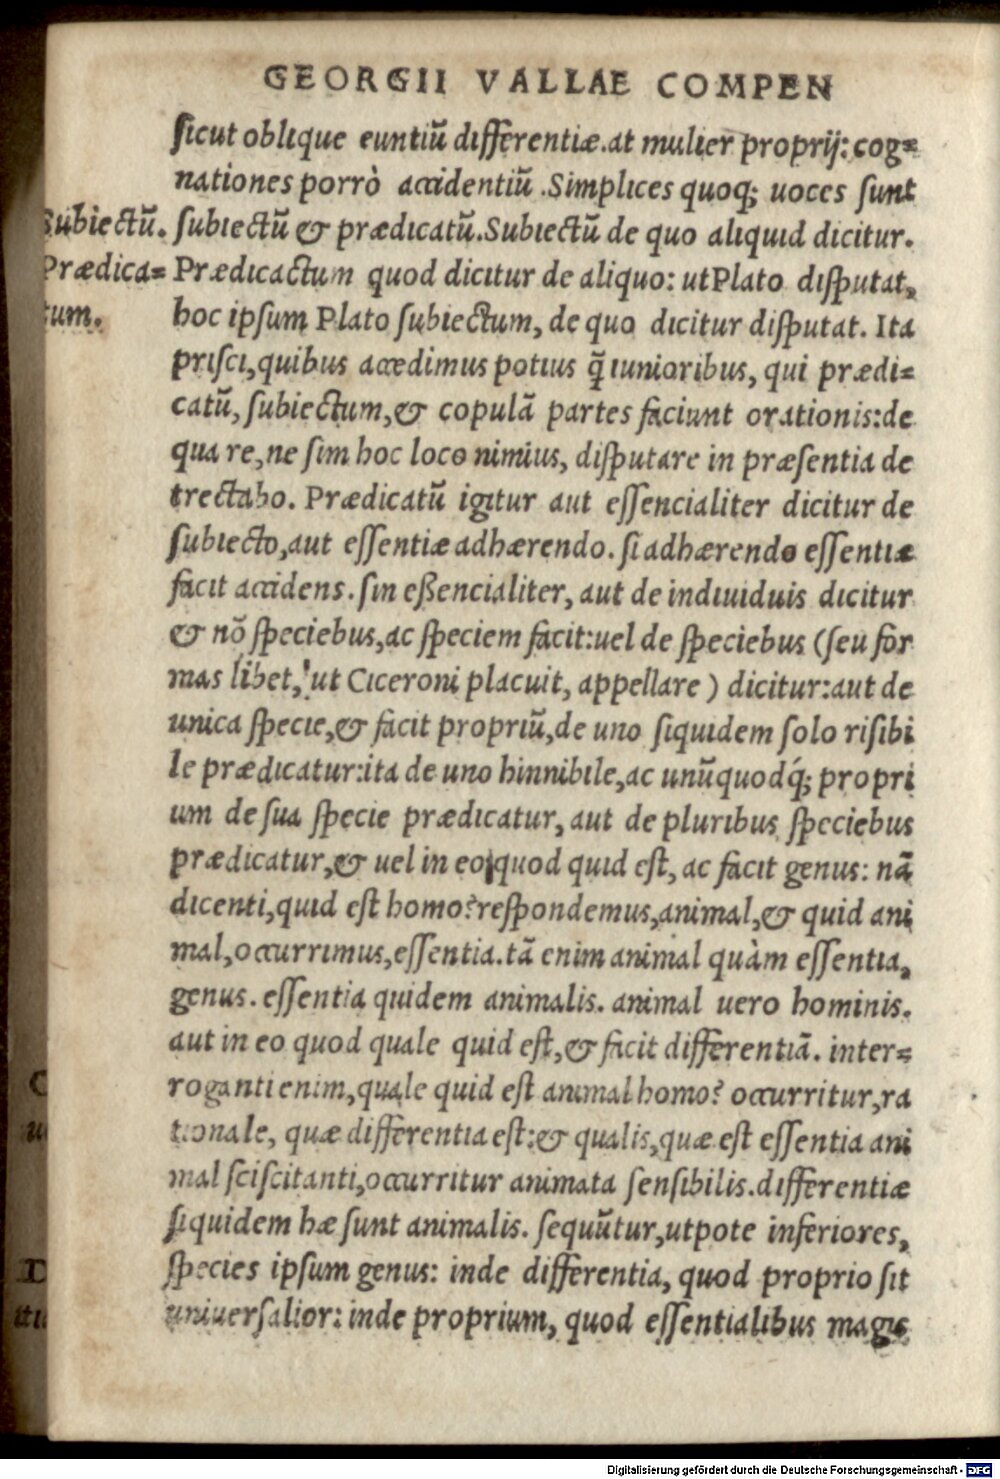 GEORGII VALLAE COMPEN
sicut oblique euntiũ differentiæ.at mulier proprij: cog=
nationes porrò accidentiũ .Simplices quoq; uoces sunt
Subiectũ. subiectũ & prædicatũ.Subiectũ de quo aliquid dicitur.
Prædica= Prædicactum quod dicitur de aliquo: ut Plato disputat,
tum. hoc ipsum Plato subiectum, de quo dicitur disputat. Ita
prisci,quibus accedimus potius q̃ iunioribus, qui prædi=
catũ, subiectum,& copulã partes faciunt orationis:de
qua re,ne sim hoc loco nimius, disputare in præsentia de
trectabo. Prædicatũ igitur aut essencialiter dicitur de
subiecto,aut essentiæ adhærendo. si adhærendo essentiæ
facit accidens. sin eßencialiter, aut de indiuiduis dicitur
& nõ speciebus,ac speciem facit:uel de speciebus (seu for
mas libet, ut Ciceroni placuit, appellare ) dicitur:aut de
unica specie,& facit propriũ,de uno siquidem solo risibi
le prædicatur:ita de uno hinnibile,ac unũquodq́; propri
um de sua specie prædicatur, aut de pluribus speciebus
prædicatur,& uel in eo quod quid est, ac facit genus: nã
dicenti,quid est homo?respondemus,animal,& quid ani
mal,occurrimus,essentia.tã enim animal quàm essentia,
genus. essentia quidem animalis. animal uero hominis.
aut in eo quod quale quid est,& facit differentiã. inter=
roganti enim,quale quid est animal homo? occurritur,ra
tionale, quæ differentia est:& qualis,quæ est essentia ani
mal sciscitanti,occurritur animata sensibilis.differentiæ
siquidem hæ sunt animalis. sequũtur,utpote inferiores,
species ipsum genus: inde differentia, quod proprio sit
uniuersalior: inde proprium, quod essentialibus magis
Digitalisierung gefördert durch die Deutsche Forschungsgemeinschaft - DFG